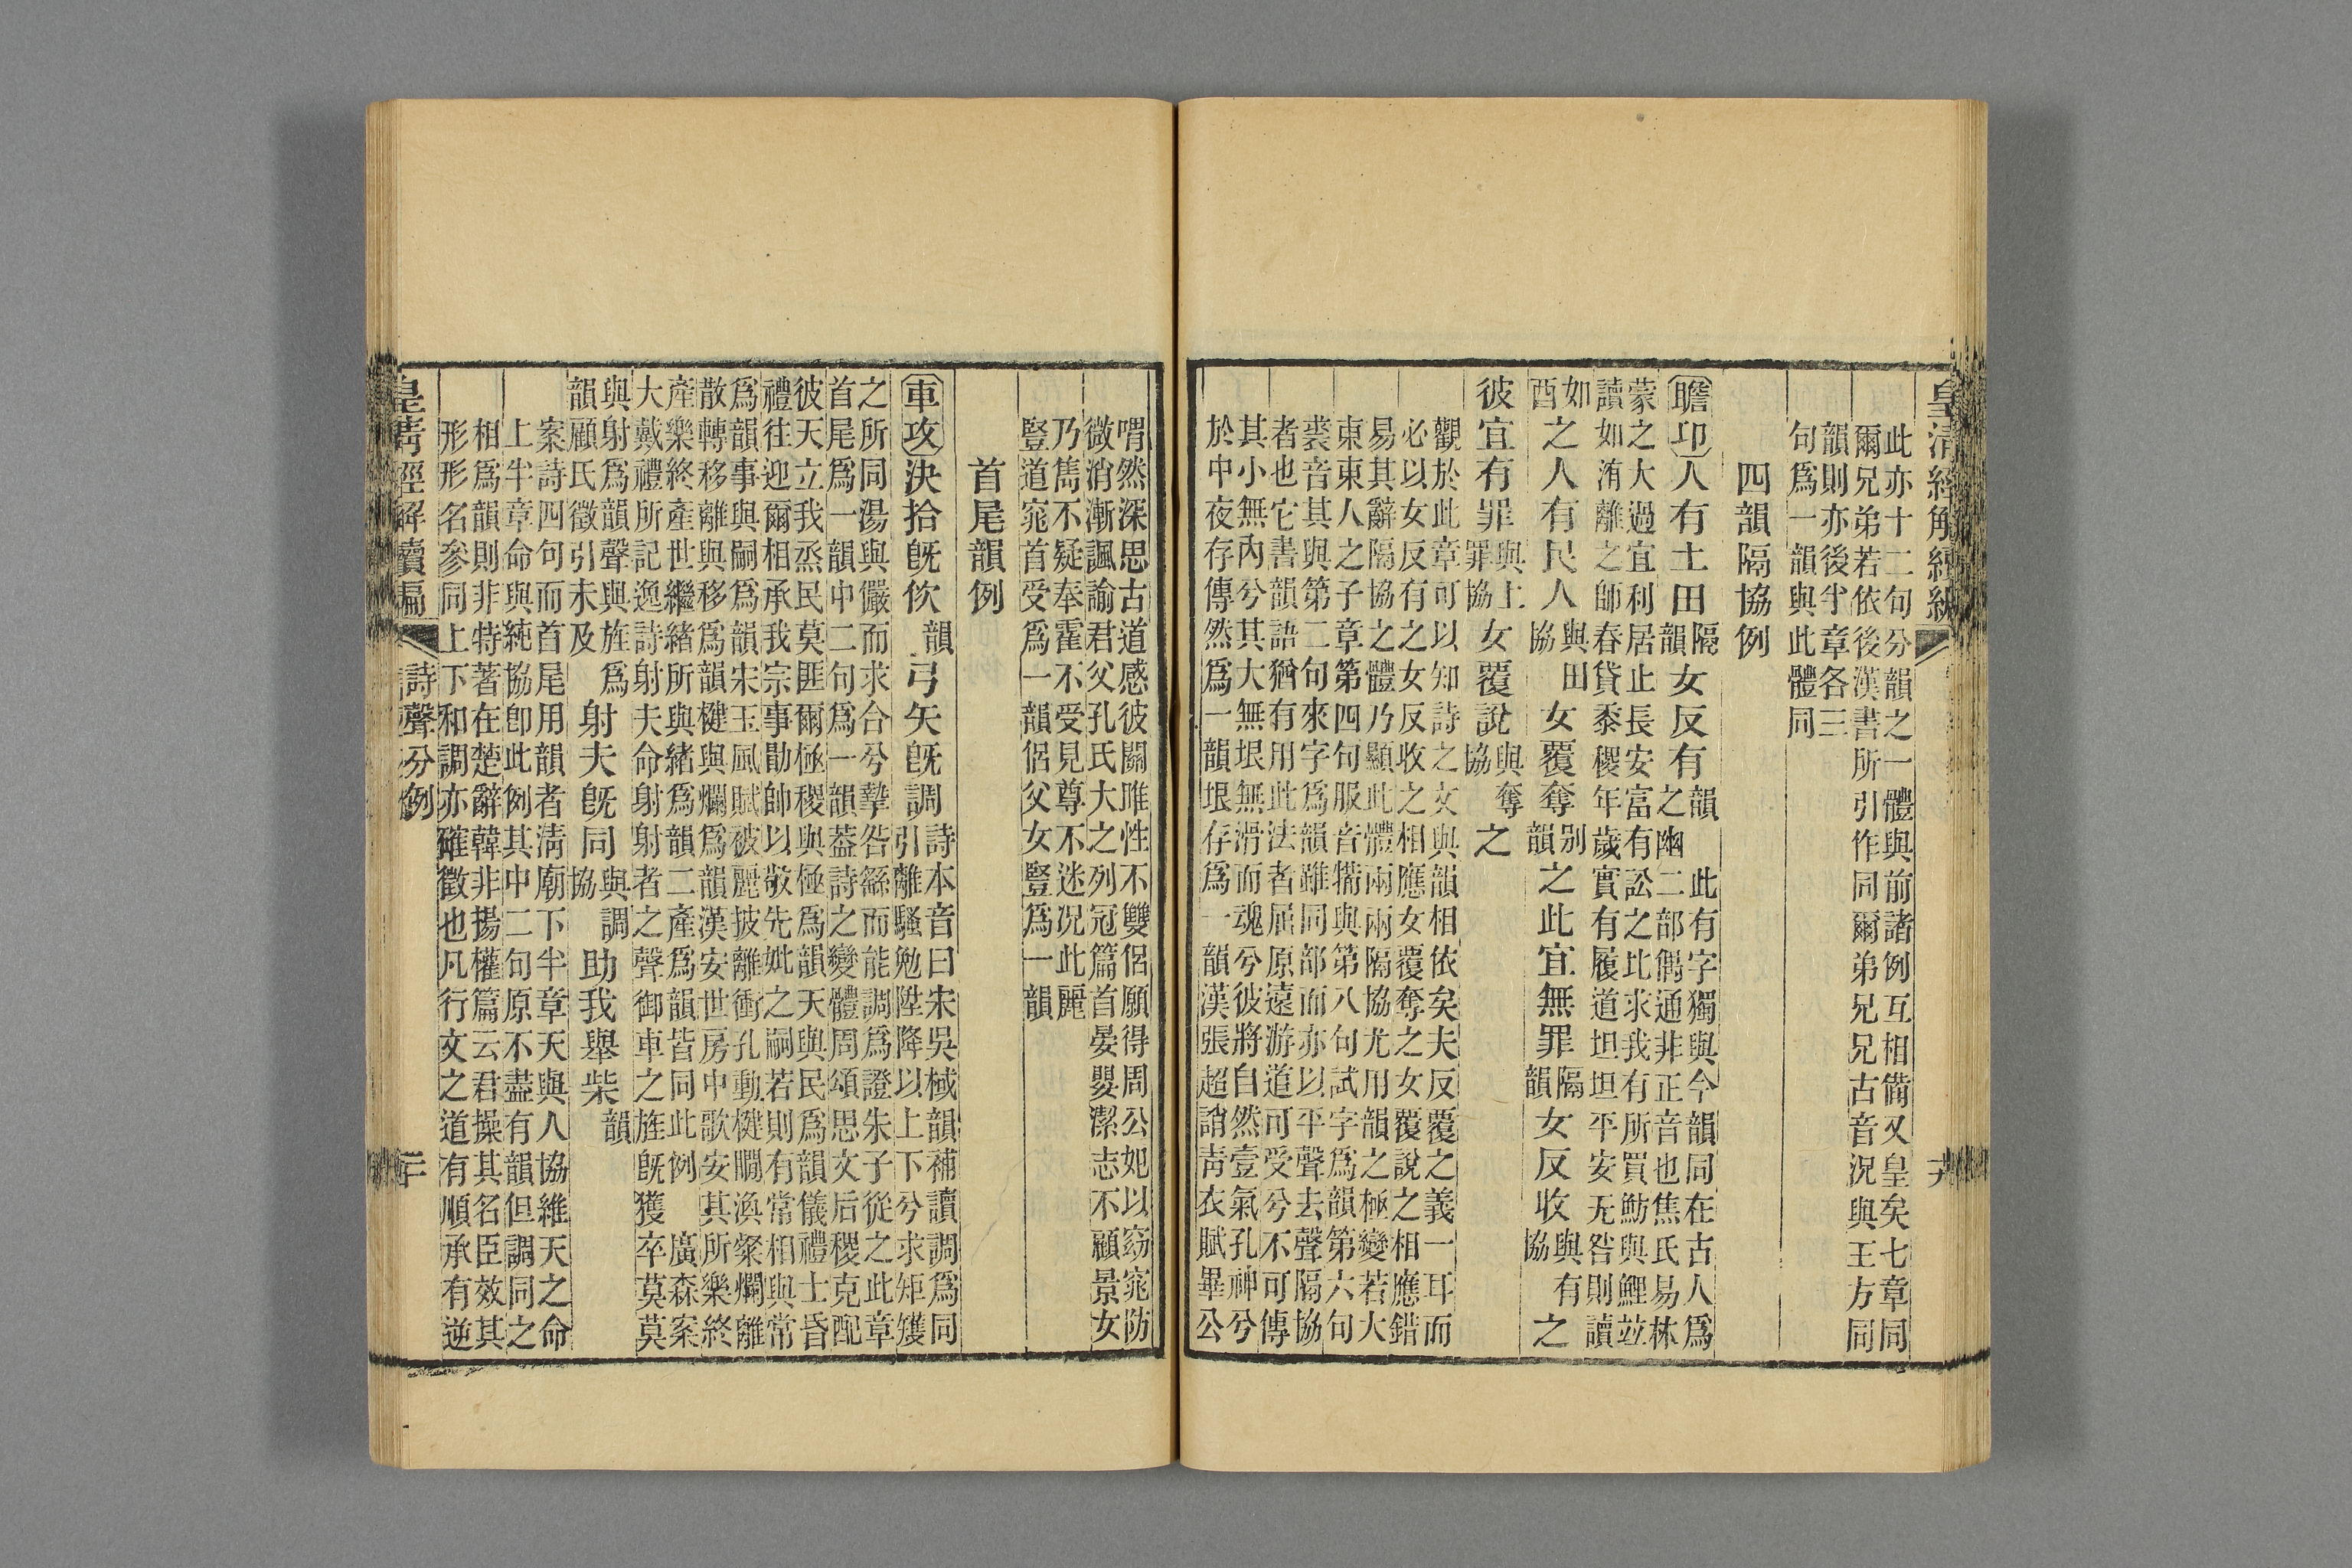 皇清經解續編
此亦十二句分韻之一體與前諸例互相備又皇矣七章同
爾兄弟若依後漢書所引作同爾弟兄兄古音況與王方同
韻則亦後半章各三
句爲一韻與此體同
四韻隔協例
瞻卬人有土田隔韻女反有之幽二部偶通非正音也焦氏易林韻此有字獨與今韻同在古人爲
蒙之大過宜利居止長安富有訟之比求我有所買魴與鯉竝
讀如洧離之師春貸黍稷年歲實有履道坦坦平安无咎則讀
如酉之人有民人與田協女覆奪別韻之此宜無罪隔韻女反收與有協之
彼宜有罪與上罪協女覆說與奪協之
觀於此章可以知詩之文與韻相依矣夫反覆之義一耳而
必以女反有之女反收之相應女覆奪之女覆說之相應錯
易其辭隔協之體乃顯此體兩兩隔協尤用韻之極變若大
東東人之子章第四句服音犕與第八句試字爲韻第六句
裘音其與第二句來字爲韻雖同部而亦以平聲去聲隔協
者也它書韻語猶有用此法者屈原遠游道可受兮不可傳
其小無內兮其大無垠無滑而魂兮彼將自然壹氣孔神兮
於中夜存傳然爲一韻垠存爲一韻漢張超誚青衣賦畢公
喟然深思古道感彼關雎性不雙侶願得周公妃以窈窕防
微消漸諷諭君父孔氏大之列冠篇首晏嬰潔志不顧景女
乃雋不疑奉霍不受見尊不迷况此麗
豎道窕首受爲一韻侶父女豎爲一韻
首尾韻例
車攻決拾旣佽韻弓矢旣調詩本音曰宋吳棫韻補讀調爲同引離騷勉陞降以上下兮求矩矱
之所同湯與儼而求合兮摯咎繇而能調爲證朱子從之此章
首尾爲一韻中二句爲一韻葢詩之變體周頌思文后稷克配
彼天立我烝民莫匪爾極稷與極爲韻天與民爲韻儀禮士昏
禮往迎爾相承我宗事勖帥以敬先妣之嗣若則有常相與常
爲韻事與嗣爲韻宋玉風賦被麗披離衝孔動楗眴渙粲爛離
散轉移離與移爲韻楗與爛爲韻漢安世房中歌安其所樂終
產樂終產世繼緒所與緒爲韻二產爲韻皆同此例廣森案
大戴禮所記逸詩射夫命射射者之聲御車之旌旣獲卒莫莫
與射爲韻聲與旌爲
韻顧氏徵引未及射夫旣同與調協助我舉柴韻
案詩四句而首尾用韻者淸廟下半章天與人協維天之命
上半章命與純協卽此例其中二句原不盡有韻但調同之
相爲韻則非特著在楚辭韓非揚權篇云君操其名臣效其
形形名參同上下和調亦確徵也凡行文之道有順承有逆
皇淸經解續編
詩聲分例